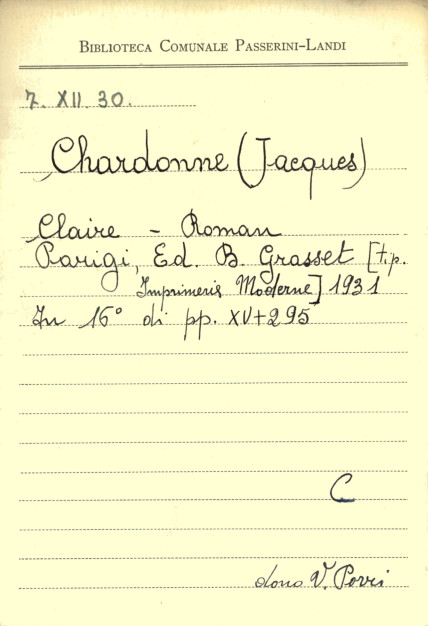 BIBLIOTECA COMUNALE PASSERINI-LANDI
7. XII. 30.
Chardonne (Jacques)
Claire - Roman
Parigi, Ed. B. Grasset [tip.
Imprimeris Moderne] 1931
In 16° di pp. XV+295
C
dono V.